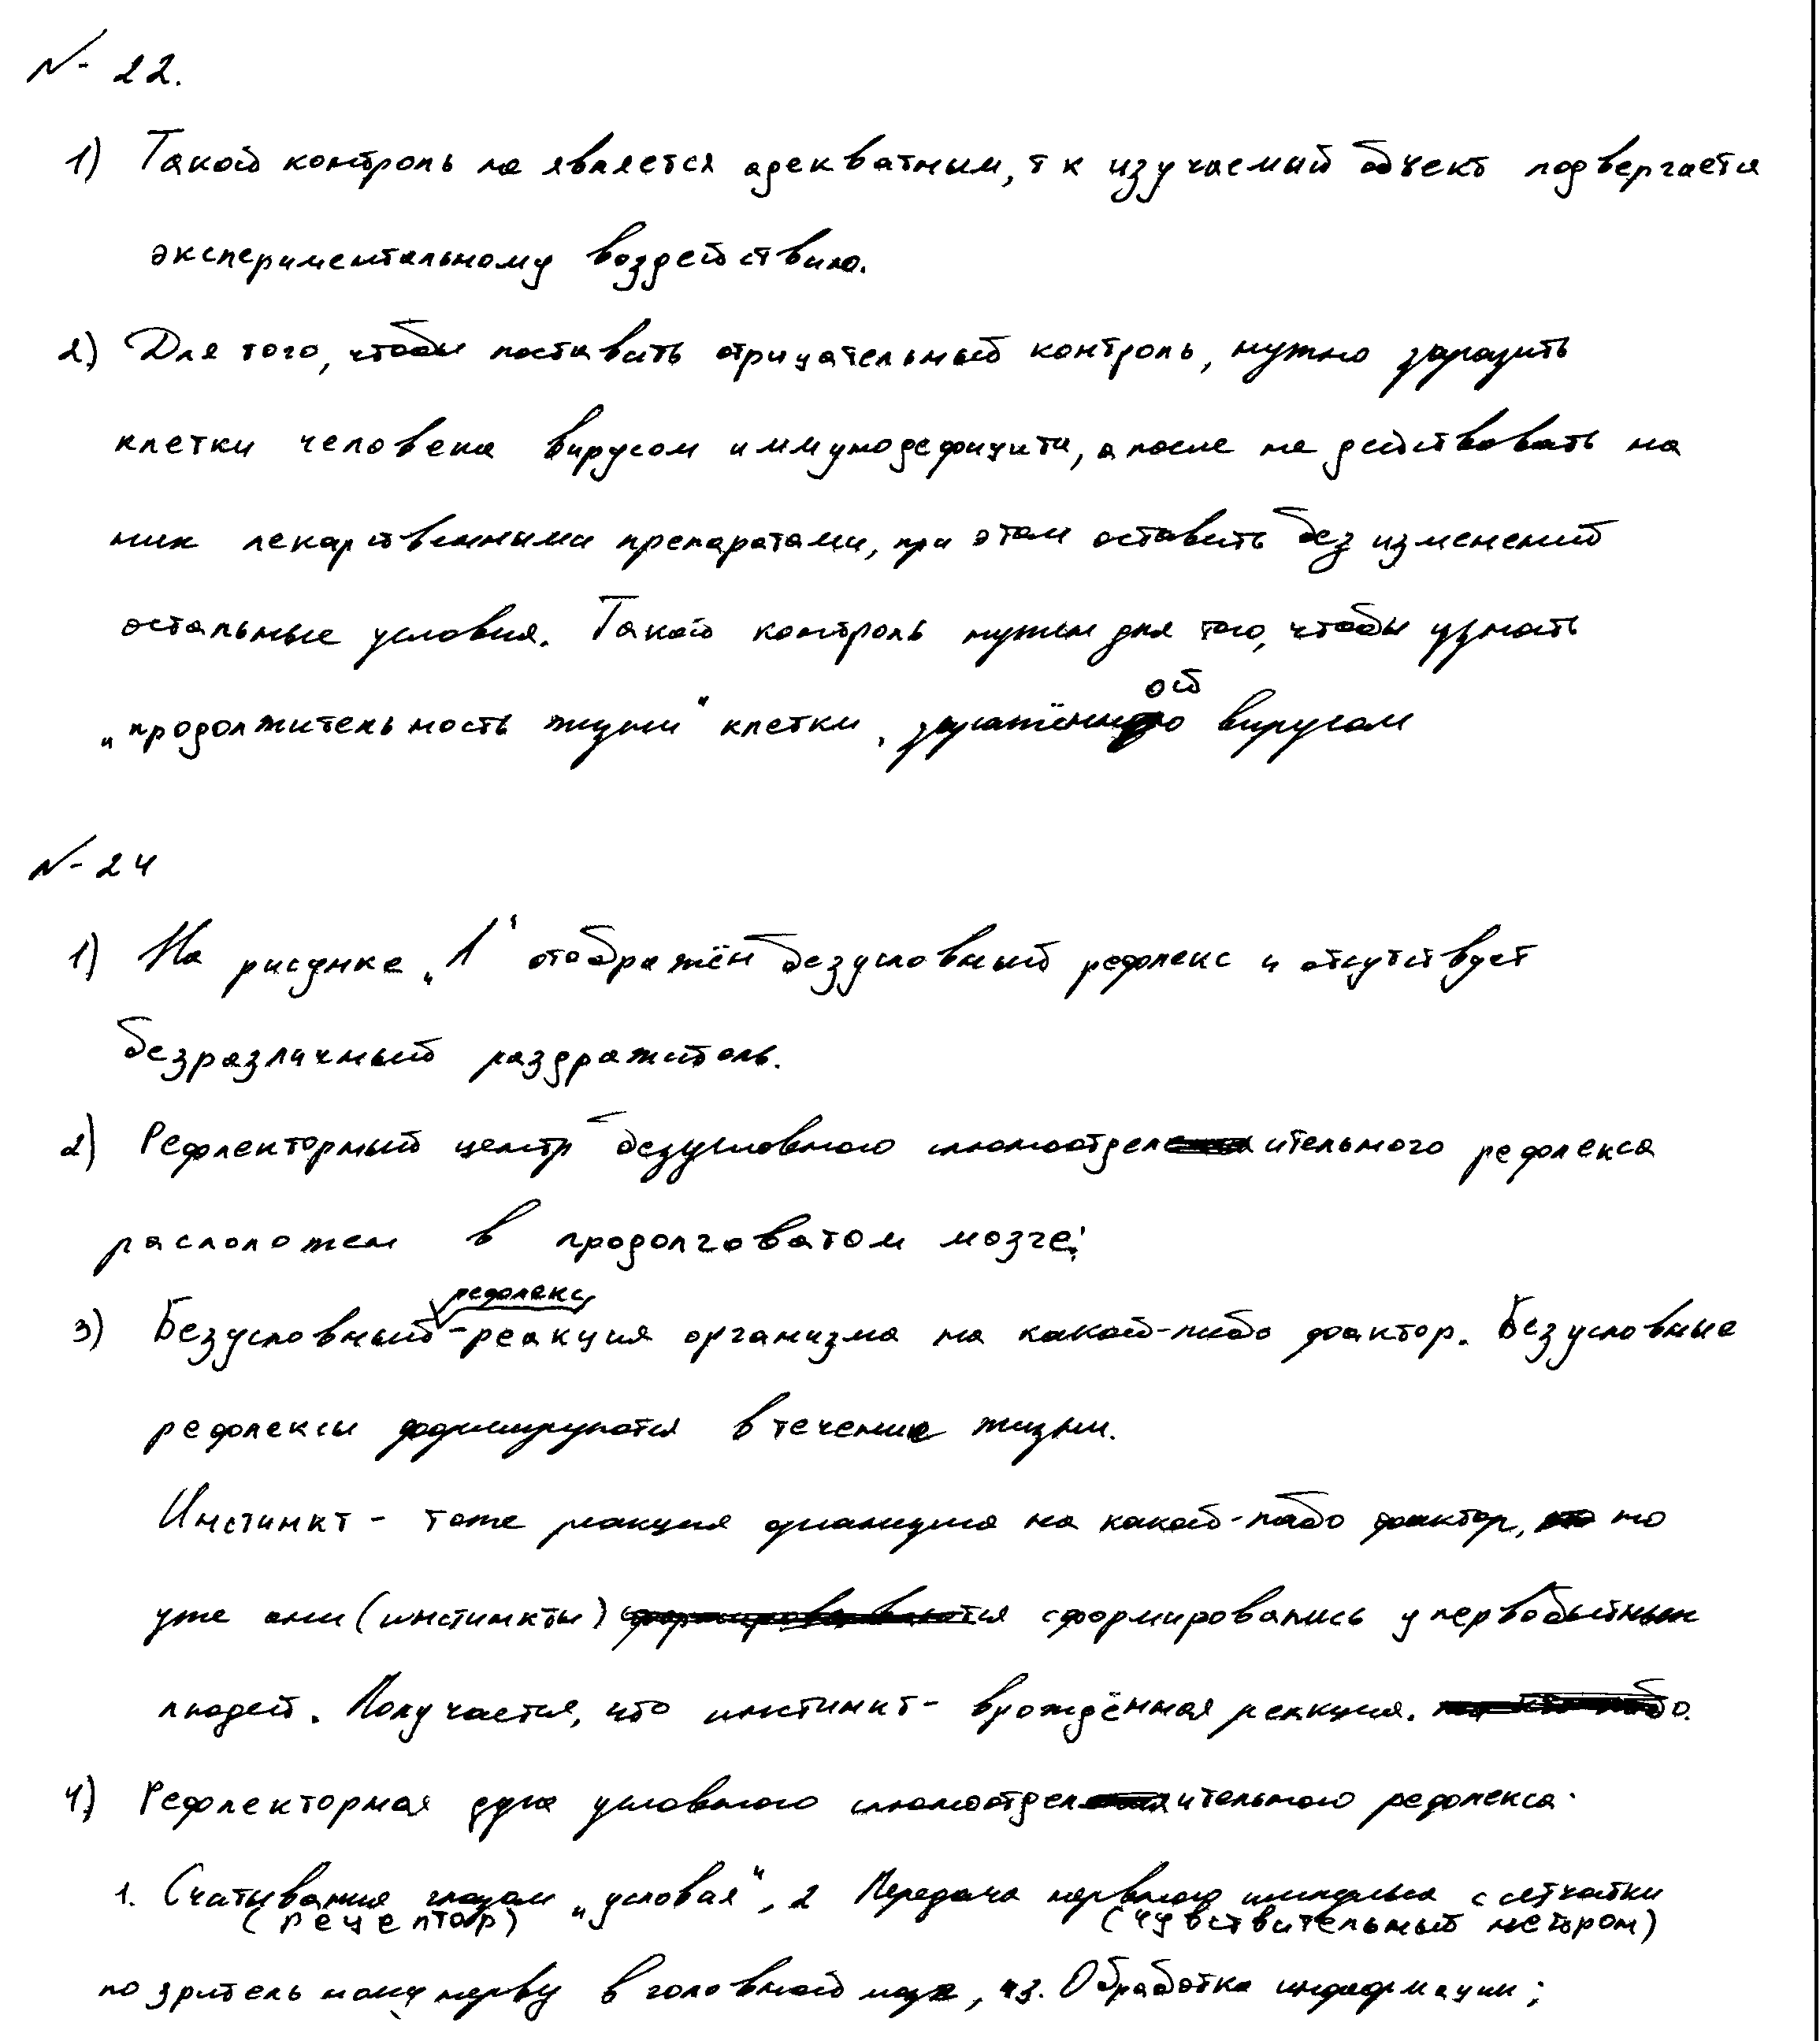 № 22.
1) Такой контроль не является адекватным, т к изучаемый объект подвергается
экспериментальному воздействию.
2) Для того, чтобы поставить отрицательный контроль, нужно заразить
клетки человека вирусом иммунодефицита, а после не действовать на
них лекарственными препаратами, при этом оставить без изменений
остальные условия. Такой контроль нужен для того, чтобы узнать
„продолжительность жизни" клетки, заражённой вирусом
№ 24
1) На рисунке „1" отображён безусловный рефлекс и отсутствует
безразличный раздражитель.
2) Рефлекторный центр безусловного слюноотделительного рефлекса
расположен в продолговатом мозге;
3) Безусловный рефлекс - реакция организма на какой-либо фактор. Безусловные
рефлексы формируются в течение жизни.
Инстинкт - тоже реакция организма на какой-либо фактор, но
уже они (инстинкты) сформировались у первобытных
людей. Получается, что инстинкт - врождённая реакция.
4) Рефлекторная дуга условного слюноотделительного рефлекса:
1. Считывание глазом „условия", 2 Передача нервного импульса с сетчатки
(рецептор) (чувствительный нейрон)
по зрительному нерву в головной мозг, 3. Обработка информации;